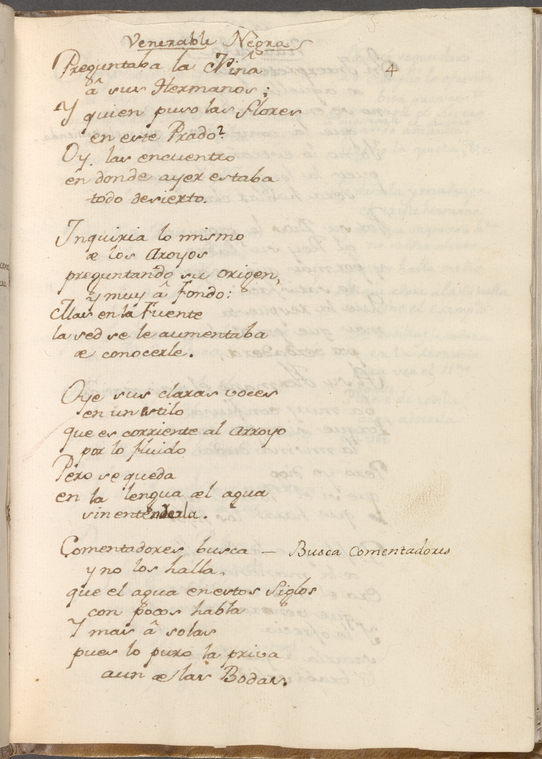 Venerable Negra
4
Preguntaba la Niña
â sus Hermanos;
Y quien puso las flores
en este Prado?
Oy. las encuentro
en donde ayer estaba
todo desierto.
Inquiria lo mismo
æ los Aroyos
preguntando su origen,
Y muy â Fondo:
Mas en la Fuente
la sed se le aumentaba
æ conocerle.
Oye sus claras voces
en un estilo
que es corriente al arroyo
por lo fluido
Pero se queda
en la lengua æl agua
sin entenderla.
Comentadores busca — Busca Comentadores
y no los halla,
que el agua en estos Siglos
con pocos habla
Y mas â solas
pues lo puro la priva
aun æ las Bodas.